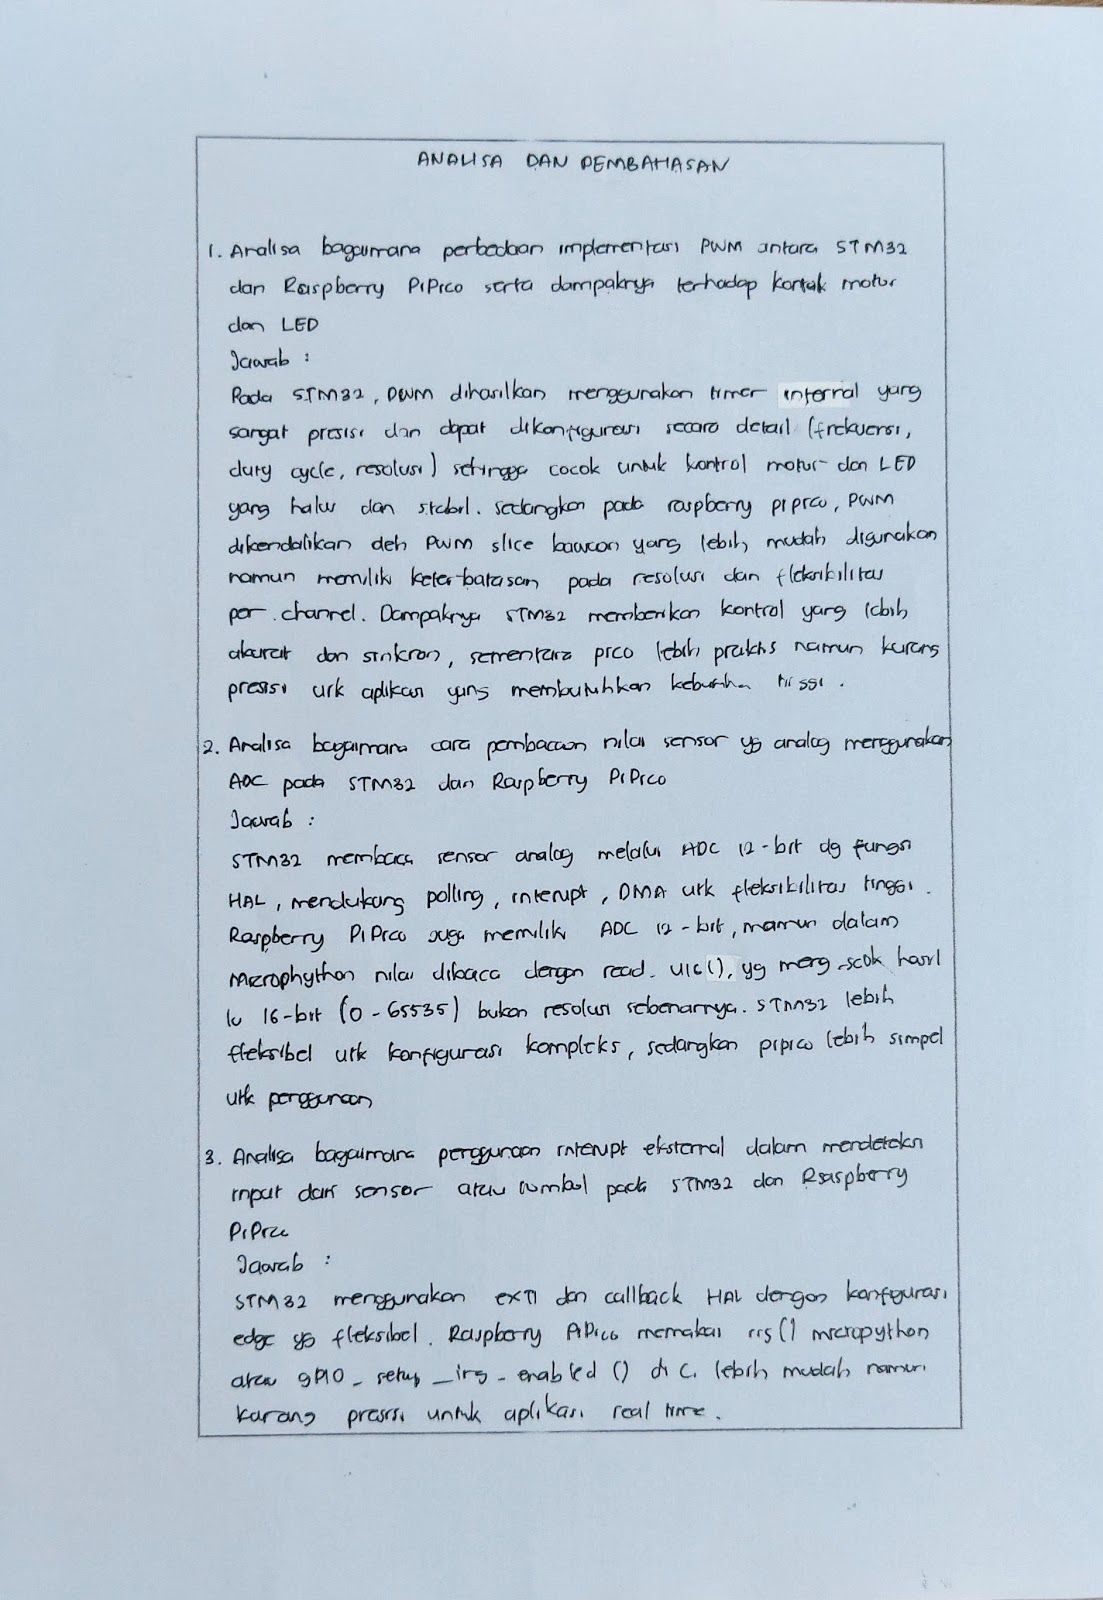 ANALISA DAN PEMBAHASAN
1. Analisa bagaimana perbedaan implementasi PWM antara STM32
dan Raspberry PiPico serta dampaknya terhadap kontak motor
dan LED
Jawab :
Pada STM32, PWM dihasilkan menggunakan timer internal yang
sangat presisi dan dapat dikonfigurasi secara detail (frekuensi,
duty cycle, resolusi) sehingga cocok untuk kontrol motor dan LED
yang halus dan stabil. sedangkan pada raspberry pipico, PWM
dikendalikan oleh PWM slice bawaan yang lebih mudah digunakan
namun memiliki keterbatasan pada resolusi dan fleksibilitas
per channel. Dampaknya STM32 memberikan kontrol yang lebih
akurat dan sinkron, sementara pico lebih praktis namun kurang
presisi utk aplikasi yang membutuhkan tinggi.
2. Analisa bagaimana cara pembacaan nilai sensor yg analog menggunakan
ADC pada STM32 dan Raspberry PiPico
Jawab :
STM32 membaca sensor analog melalui ADC 12-bit dg fungsi
HAL, mendukung polling, interupt, DMA utk fleksibilitas tinggi.
Raspberry PiPico juga memiliki ADC 12-bit, namun dalam
Microphython nilai dibaca dengan read_u16(), yg hasil
ke 16-bit (0-65535) bukan resolusi sebenarnya. STM32 lebih
fleksibel utk konfigurasi kompleks, sedangkan pipico lebih simpel
utk penggunaan
3. Analisa bagaimana penggunaan interupt eksternal dalam mendeteksi
input dari sensor atau tombol pada STM32 dan Raspberry
PiPico
Jawab :
STM32 menggunakan EXTI dan callback HAL dengan konfigurasi
edge yg fleksibel. Raspberry PiPico memakai irq() micropython
atau gpio_setup_irq_enabled () di C. lebih mudah namun
kurang presisi untuk aplikasi real time.